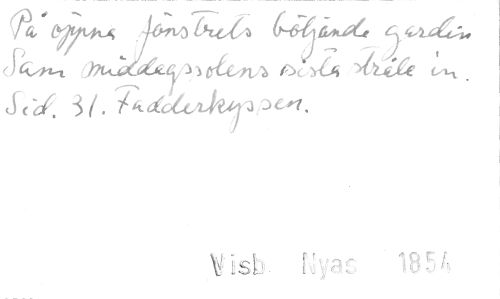 På öppna fönstrets böljande gardin
Sam middagssolens sista stråle in.
Sid. 31. Fadderkyssen.
Visb. Nyas 1854